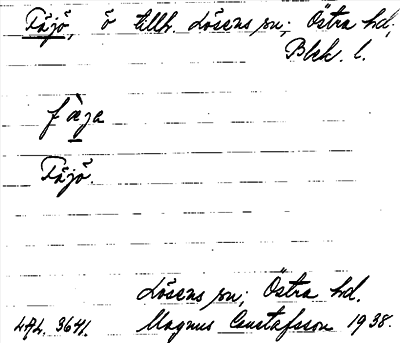 Fäjö, ö tillh. Lösens sn; Östra hd;
Blek. l.
fàja
Fäjö.
Lösens sn; Östra hd.
Magnus Gustafsson 1938.